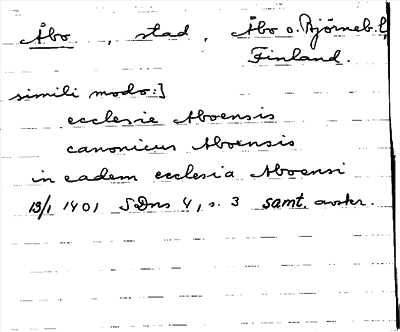 Åbo, stad, Åbo o. Björneb. l,
Finland.
simili modo:]
ecclesie Aboensis
canonicus Aboensis
in eadem ecclesia Aboensi
13/1 1401 SDns 4, s. 3 samt. avskr.